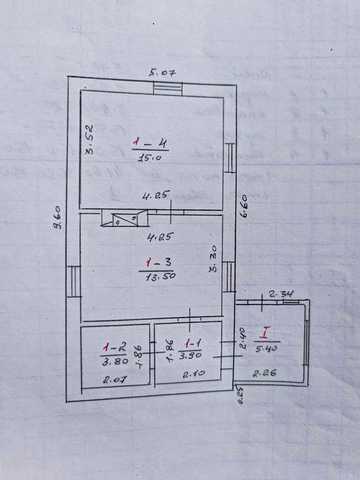 5.07
3.52
1-4
15.0
4.25
9.60
6.60
4.25
3.30
1-3
13.50
2.34
1-2
3.80
1.86
2.07
1.86
1-1
3.90
2.10
2.40
I
5.40
2.26
0.25